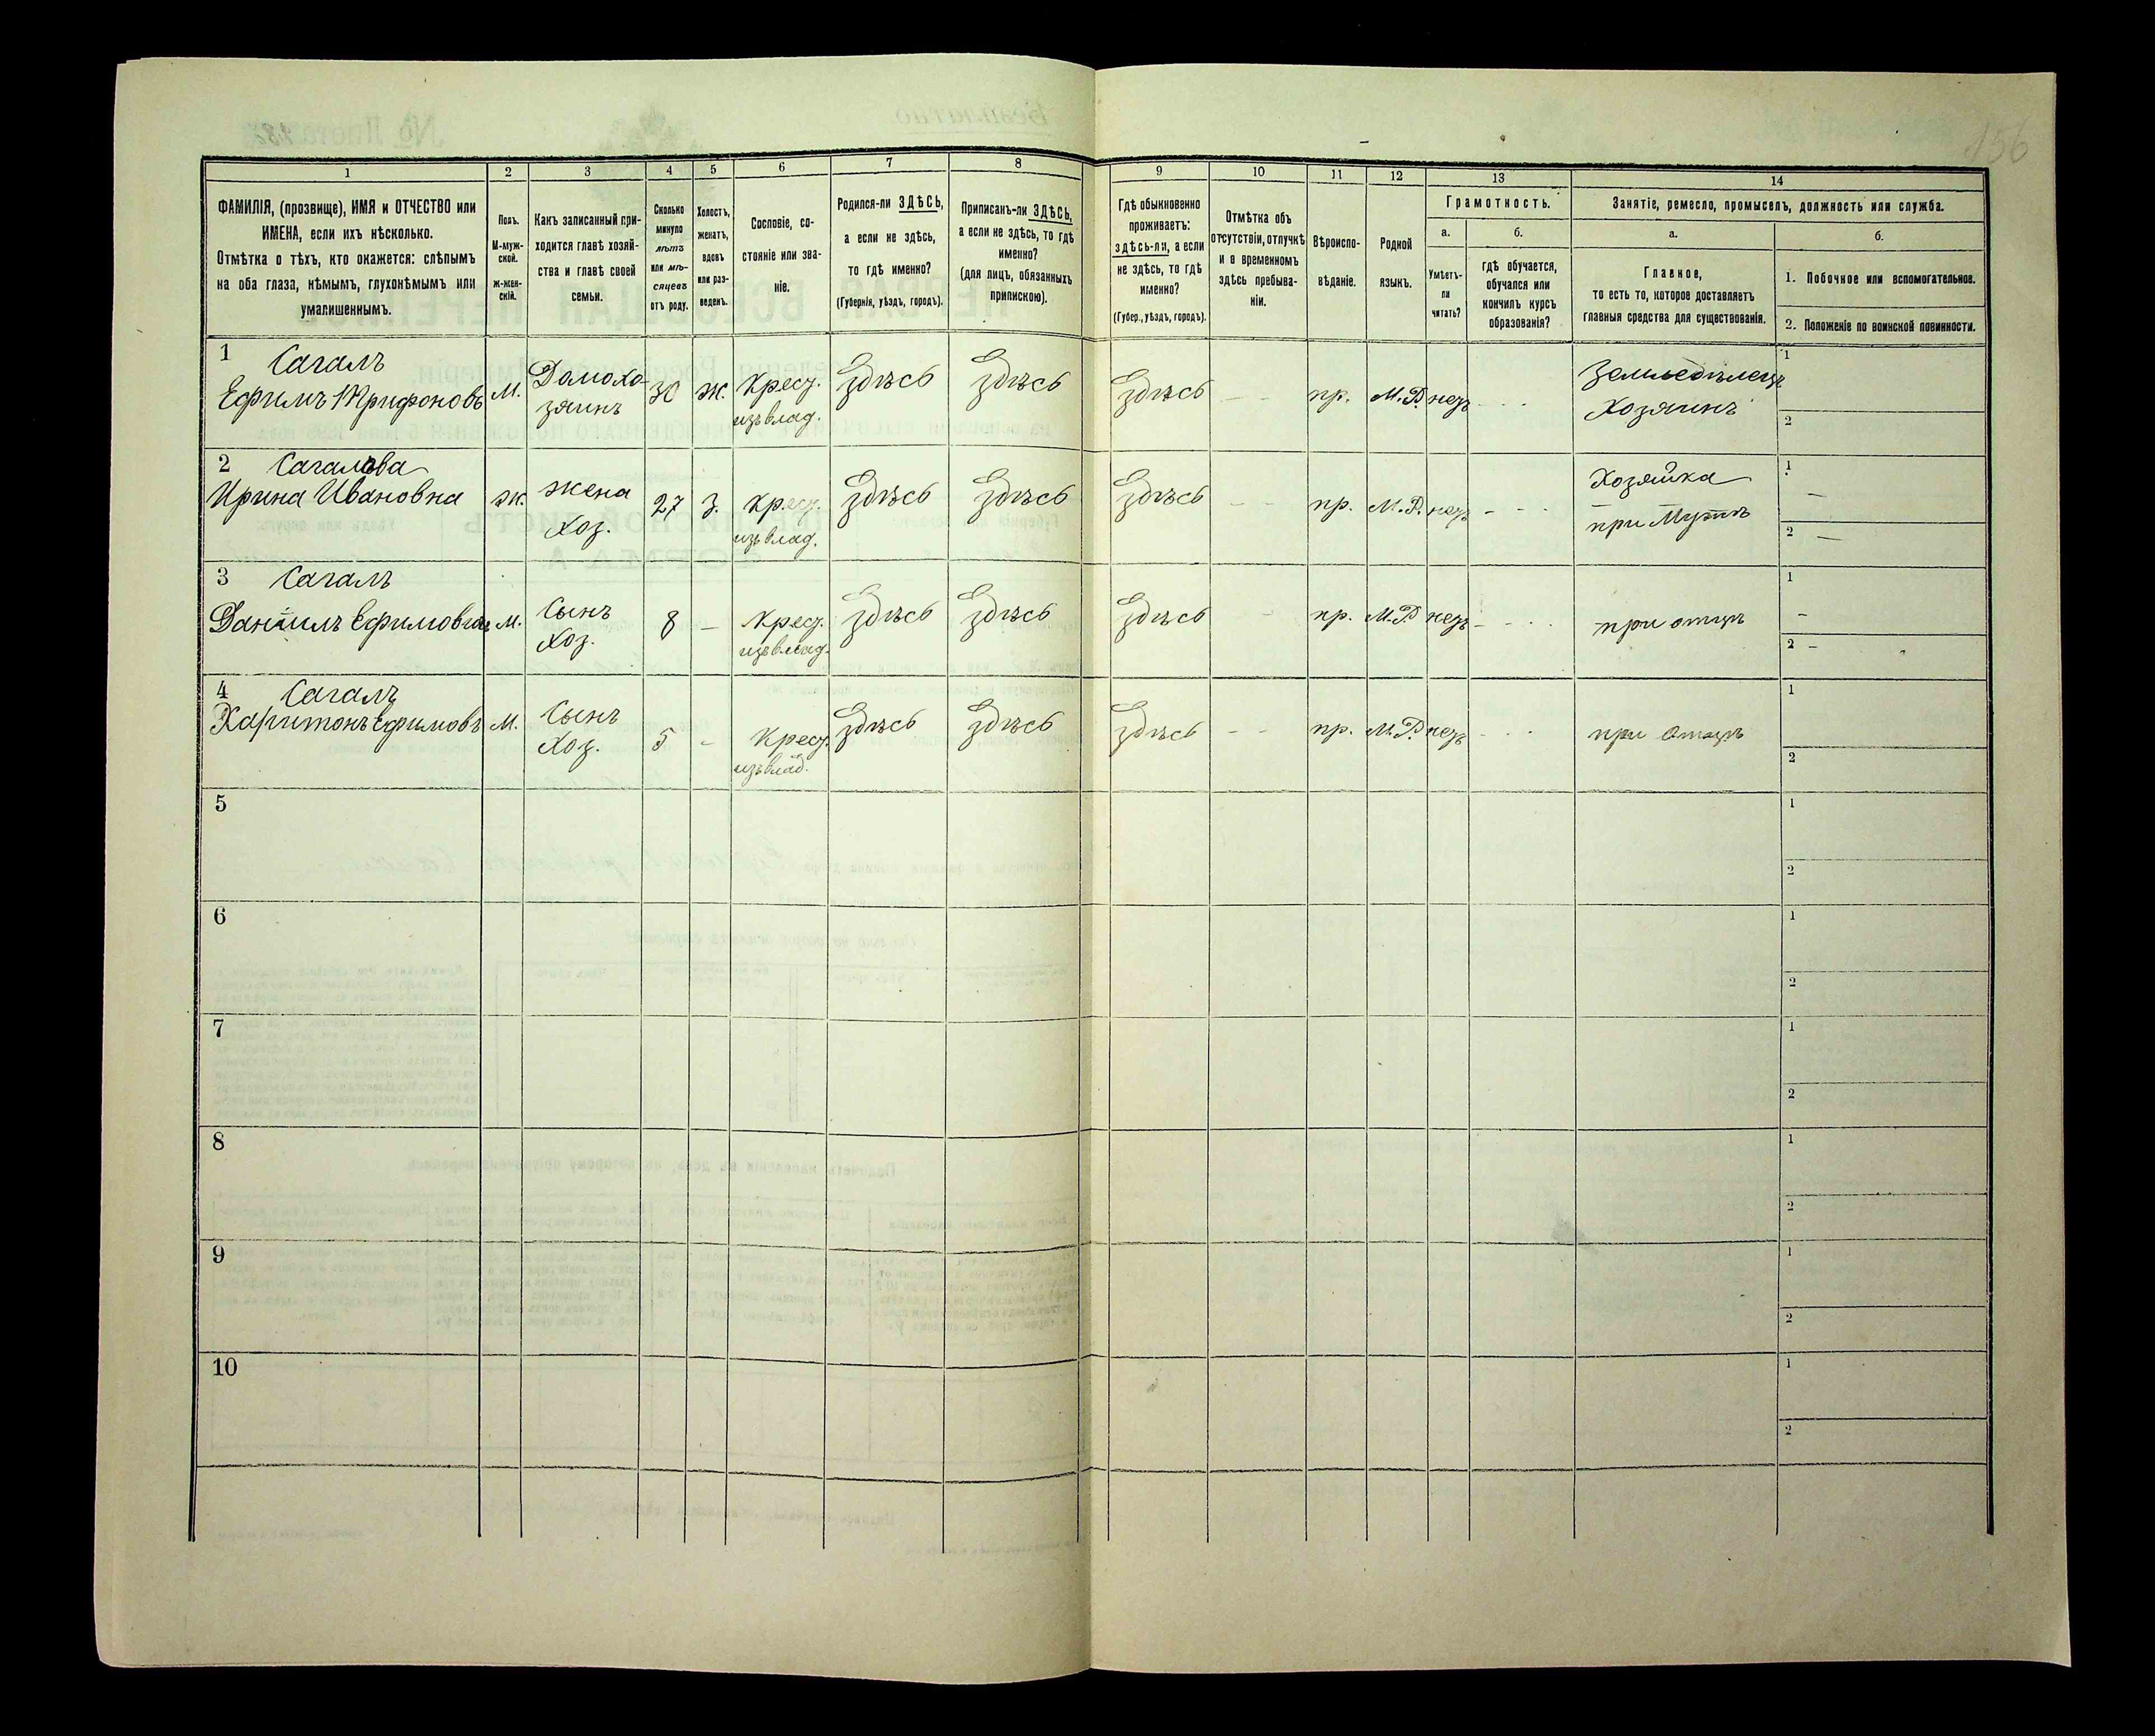 156
1
2
3
4
5
6
7
8
9
10
11
12
13
14
ФАМИЛІЯ, (прозвище), ИМЯ и ОТЧЕСТВО или
ИМЕНА, если ихъ нѣсколько.
Отмѣтка о тѣхъ, кто окажется: слѣпымъ
на оба глаза, нѣмымъ, глухонѣмымъ или
умалишеннымъ.
Полъ.
М-муж-
ской.
ж-жен-
скій.
Какъ записанный при-
ходится главѣ хозяй-
ства и главѣ своей
семьи.
Сколько
минуло
лѣтъ
или мѣ-
сяцевъ
отъ роду.
Холостъ,
женатъ,
вдовъ
или раз-
веденъ.
Сословіе, со-
стояніе или зва-
ніе.
Родился-ли ЗДѢСЬ,
а если не здѣсь,
то гдѣ именно?
(Губернія, уѣздъ, городъ).
Приписанъ-ли ЗДѢСЬ,
а если не здѣсь, то гдѣ
именно?
(для лицъ, обязанныхъ
припискою).
Гдѣ обыкновенно
проживаетъ:
здѣсь-ли, а если
не здѣсь, то гдѣ
именно?
(Губер., уѣздъ, городъ).
Отмѣтка объ
отсутствіи, отлучкѣ
и о временномъ
здѣсь пребыва-
ніи.
Вѣроиспо-
вѣданіе.
Родной
языкъ.
Грамотность.
а.
Умѣетъ-
ли
читать?
б.
гдѣ обучается,
обучался или
кончилъ курсъ
образованія?
Занятіе, ремесло, промыселъ, должность или служба.
а.
Главное,
то есть то, которое доставляетъ
главныя средства для существованія.
б.
1. Побочное или вспомогательное.
2. Положеніе по воинской повинности.
1 Сагалъ
Ефимъ Трифоновъ
М.
Домохо-
зяинъ
30
Ж.
Крест.
изъ влад.
Здѣсь
Здѣсь
Здѣсь
- -
пр.
М.Р.
нетъ
- - -
Земледѣлецъ
Хозяинъ
1
2
2 Сагалова
Ирина Ивановна
Ж.
Жена
Хоз.
27
З.
Крест.
изъ влад.
Здѣсь
Здѣсь
Здѣсь
- -
пр.
М.Р.
нетъ
- - -
Хозяйка
при Мужѣ
1 -
2 -
3 Сагалъ
Даніилъ Ефимовъ
М.
Сынъ
Хоз.
8
-
Крест.
изъ влад.
Здѣсь
Здѣсь
Здѣсь
-
пр.
М.Р.
нетъ
- - -
при отцѣ
1 -
2 -
4 Сагалъ
Харитонъ Ефимовъ
М.
Сынъ
Хоз.
5
-
Крест.
изъ влад.
Здѣсь
Здѣсь
Здѣсь
- -
пр.
М.Р.
нетъ
- - -
при Отцѣ
1
2
5
1
2
6
1
2
7
1
2
8
1
2
9
1
2
10
1
2